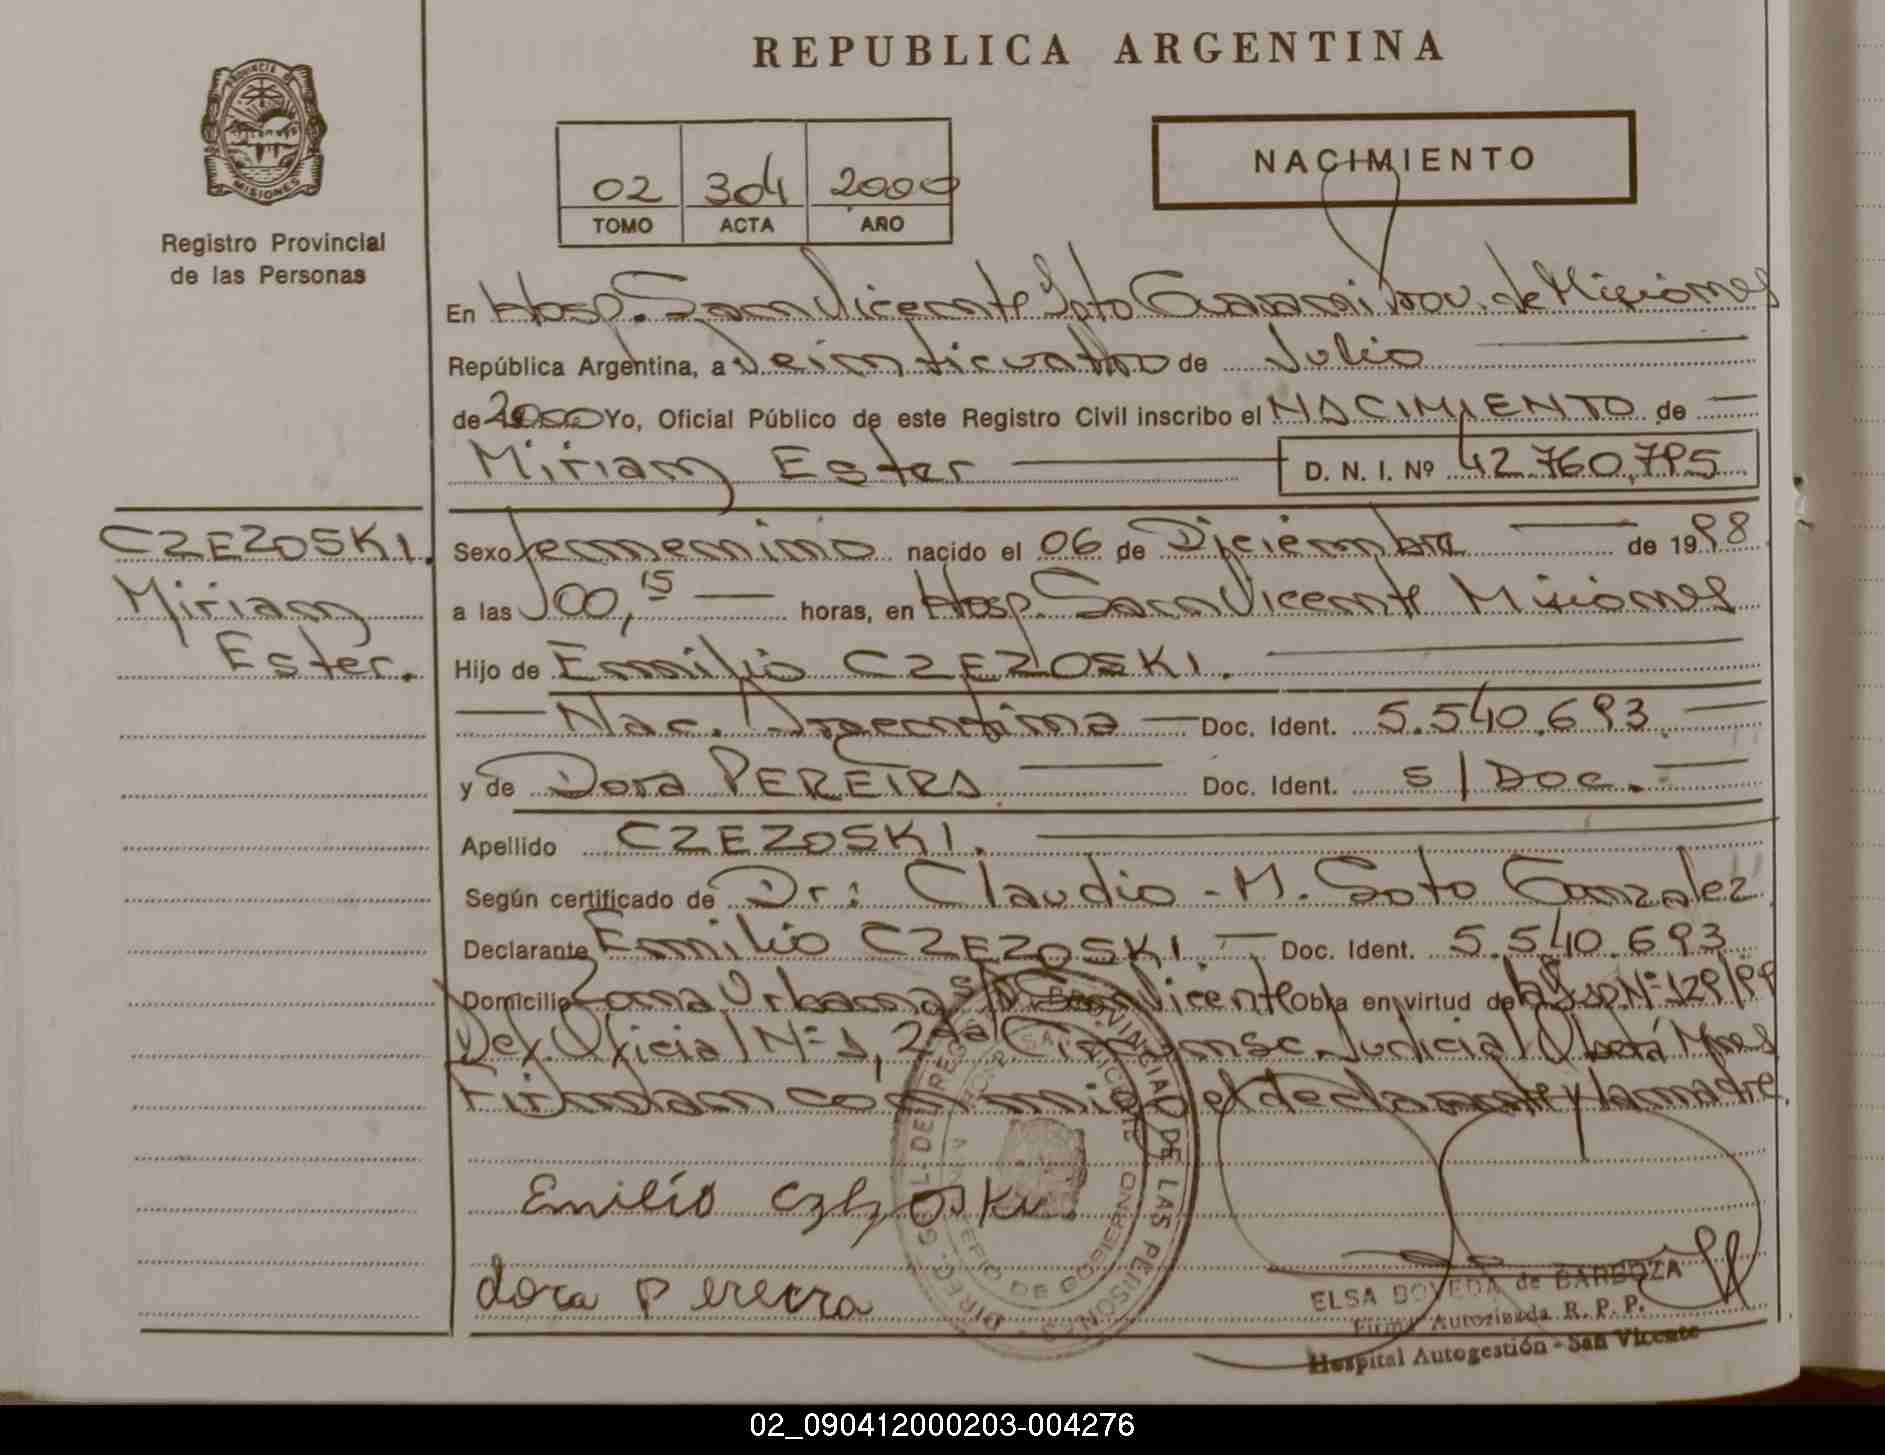 REPUBLICA ARGENTINA
PROVINCIA DE
MISIONES
Registro Provincial
de las Personas
02 304 2000
TOMO ACTA AÑO
NACIMIENTO
En Hosp. San Vicente Dpto Guarani Prov. de Misiones
República Argentina, a Veinticuatro de Julio
de 2000 Yo, Oficial Público de este Registro Civil inscribo el NACIMIENTO de
Miriam Ester D. N. I. Nº 42.760.795
CZEZOSKI.
Miriam
Ester.
Sexo femenino nacido el 06 de Diciembre de 1998
a las 00,15 horas, en Hosp. San Vicente Misiones
Hijo de Emilio CZEZOSKI.
Nac. Argentina Doc. Ident. 5.540.693
y de Dora PEREIRA Doc. Ident. s/Doc.
Apellido CZEZOSKI.
Según certificado de Dr: Claudio - M. Soto Gonzalez
Declarante Emilio CZEZOSKI Doc. Ident. 5.540.693
Domicilio Zona Urbana s/n San Vicente Obra en virtud de Nº 129/99
Def. Oficial Nº 1, 2da Circunsc. Judicial Oberá Mnes
Firman conmigo el declarante y la madre.
DIREC. GRAL. DEL REG. PROVINCIAL DE LAS PERSONAS
DE GOBIERNO
Emilio
dora Pereira
ELSA BOVEDA de BARBOZA
Firma Autorizada R. P. P.
Hospital Autogestión - San Vicente
02_090412000203-004276